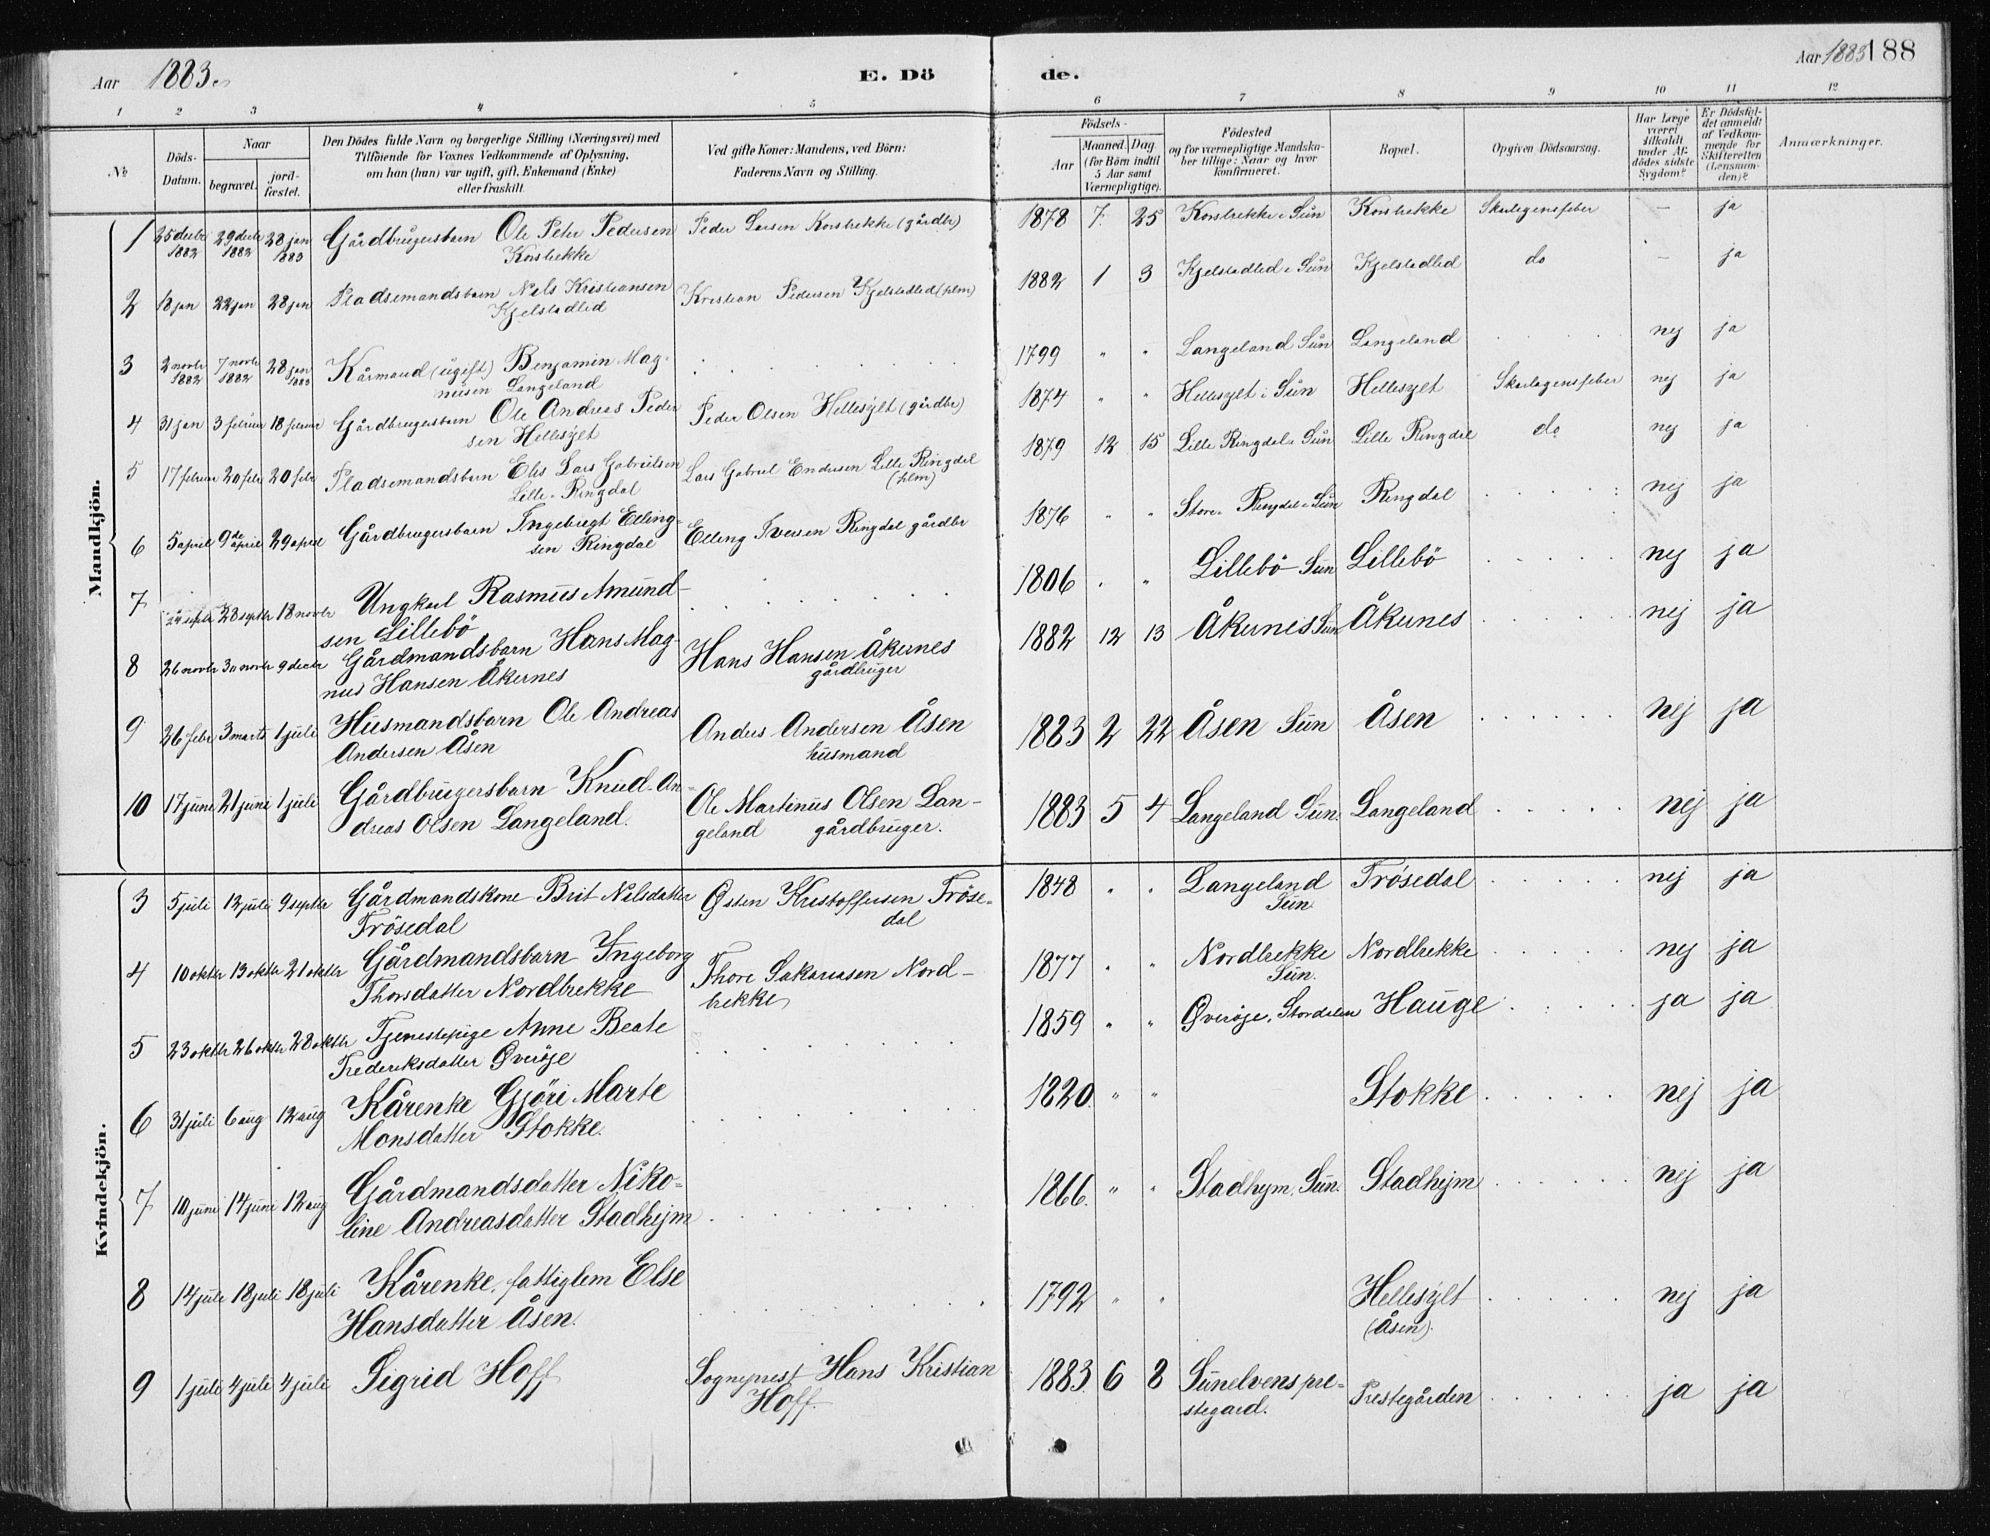 Aar 1883. E. Dö de. Aar 1883 188
1 2 3 4 5 6 7 8 9 10 11 12
No Döds-Datum. Naar begravet. jord-fæstet. Den Dödes fulde Navn og borgerlige Stilling (Næringsvei) med Tilföiende for Voxnes Vedkommende af Oplysning, om han (hun) var ugift, gift, Enkemand (Enke) eller fraskilt. Ved gifte Koner: Mandens, ved Börn: Faderens Navn og Stilling. Födsels- Aar Maaned. Dag. (for Börn indtil 5 Aar samt Værnepligtige). Födested og for værnepligtige Mandska-ber tillige: Naar og hvor konfirmeret. Bopæl. Opgiven Dödsaarsag. Har Læge været tilkaldt under Af-dödes sidste Sygdom? Er Dödsfal-det anmeldt af Vedkom-mende for Skifteretten (Lensman-den)? Anmærkninger.
Mandkjön.
1 25 decbr 1882 29 decbr 1882 28 jan 1883 Gårdbrugersbarn Ole Peter Pedersen Korsbrekke Peder Larsen Korsbrekke (gårdbr) 1878 7 25 Korsbrekke i Sun Korsbrekke Skarlagensfeber – ja
2 18 jan 22 jan 28 jan Pladsemandsbarn Nils Kristiansen Kjelstadlid Kristian Pedersen Kjelstadlid (plm) 1882 1 3 Kjelstadlid i Sun Kjelstadlid do – ja
3 2 novbr 1882 7 novbr 1882 28 jan 1883 Kårmand (ugift) Benjamin Mag-nusen Langeland 1799 " " Langeland Sun Langeland nej ja
4 31 jan 3 februar 18 februar Gårdbrugersbarn Ole Andreas Peder-sen Hellesylt Peder Olsen Hellesylt (gårdbr) 1874 " " Hellesylt i Sun Hellesylt Skarlagensfeber nej ja
5 17 februar 20 febr 20 febr Pladsemandsbarn Elis Lars Gabrielsen Lille-Ringdal Lars Gabriel Endresen Lille Ringdal (plm) 1879 12 15 Lille Ringdal i Sun Lille Ringdal do nej ja
6 5 april 9de april 29 april Gårdbrugersbarn Ingebrigt Elling-sen Ringdal Elling Iversen Ringdal gårdbr 1876 " " Store-Ringdal i Sun Ringdal nej ja
7 24 septbr 28 septbr 18 novbr Ungkarl Rasmus Amund-sen Lillebö 1806 " " Lillebö Sun Lillebö nej ja
8 26 novbr 30 novbr 9 decbr Gårdmandsbarn Hans Mag-nus Hansen Åkernes Hans Hansen Åkernes gårdbruger 1882 12 13 Åkernes Sun Åkernes nej ja
9 26 febr 3 marts 1 juli Husmandsbarn Ole Andreas Andersen Åsen Anders Andersen Åsen husmand 1883 2 22 Åsen Sun Åsen nej ja
10 17 juni 21 juni 1 juli Gårdbrugersbarn Knud An-dreas Olsen Langeland. Ole Martinus Olsen Lan-geland gårdbruger. 1883 5 4 Langeland Sun. Langeland nej ja
Kvindekjön.
3 5 juli 13 juli 9 septbr Gårdmandskone Brit Nilsdatter Frösedal Østen Kristoffersen Fröse-dal 1848 " " Langeland Sun. Frösedal nej ja
4 10 oktbr 13 oktbr 21 oktbr Gårdmandsbarn Ingeborg Thorsdatter Nordbrekke Thore Sakariasen Nord-brekke 1877 " " Nordbrekke Sun. Nordbrekke nej ja
5 23 oktbr 26 oktbr 28 oktbr Tjenestepige Anne Beate Frederiksdatter Øveröje 1859 " " Øveröje, Stordalen Hauge ja ja
6 31 juli 6 aug 12 aug Kårenke Gjöri Marte Monsdatter Stokke. 1820 " " Stokke nej ja
7 10 juni 14 juni 12 aug Gårdmandsdatter Niko-line Andreasdatter Stadhejm 1866. " " Stadhejm, Sun. Stadhejm nej ja
8 14 juli 18 juli 18 juli Kårenke, fattiglem Else Hansdatter Åsen. 1792 " " Hellesylt (Åsen). nej ja
9 1 juli 4 juli 4 juli Sigrid Hoff Sogneprest Hans Kristian Hoff. 1883 6 8 Sunelvens pre-stegard. Prestegården ja ja